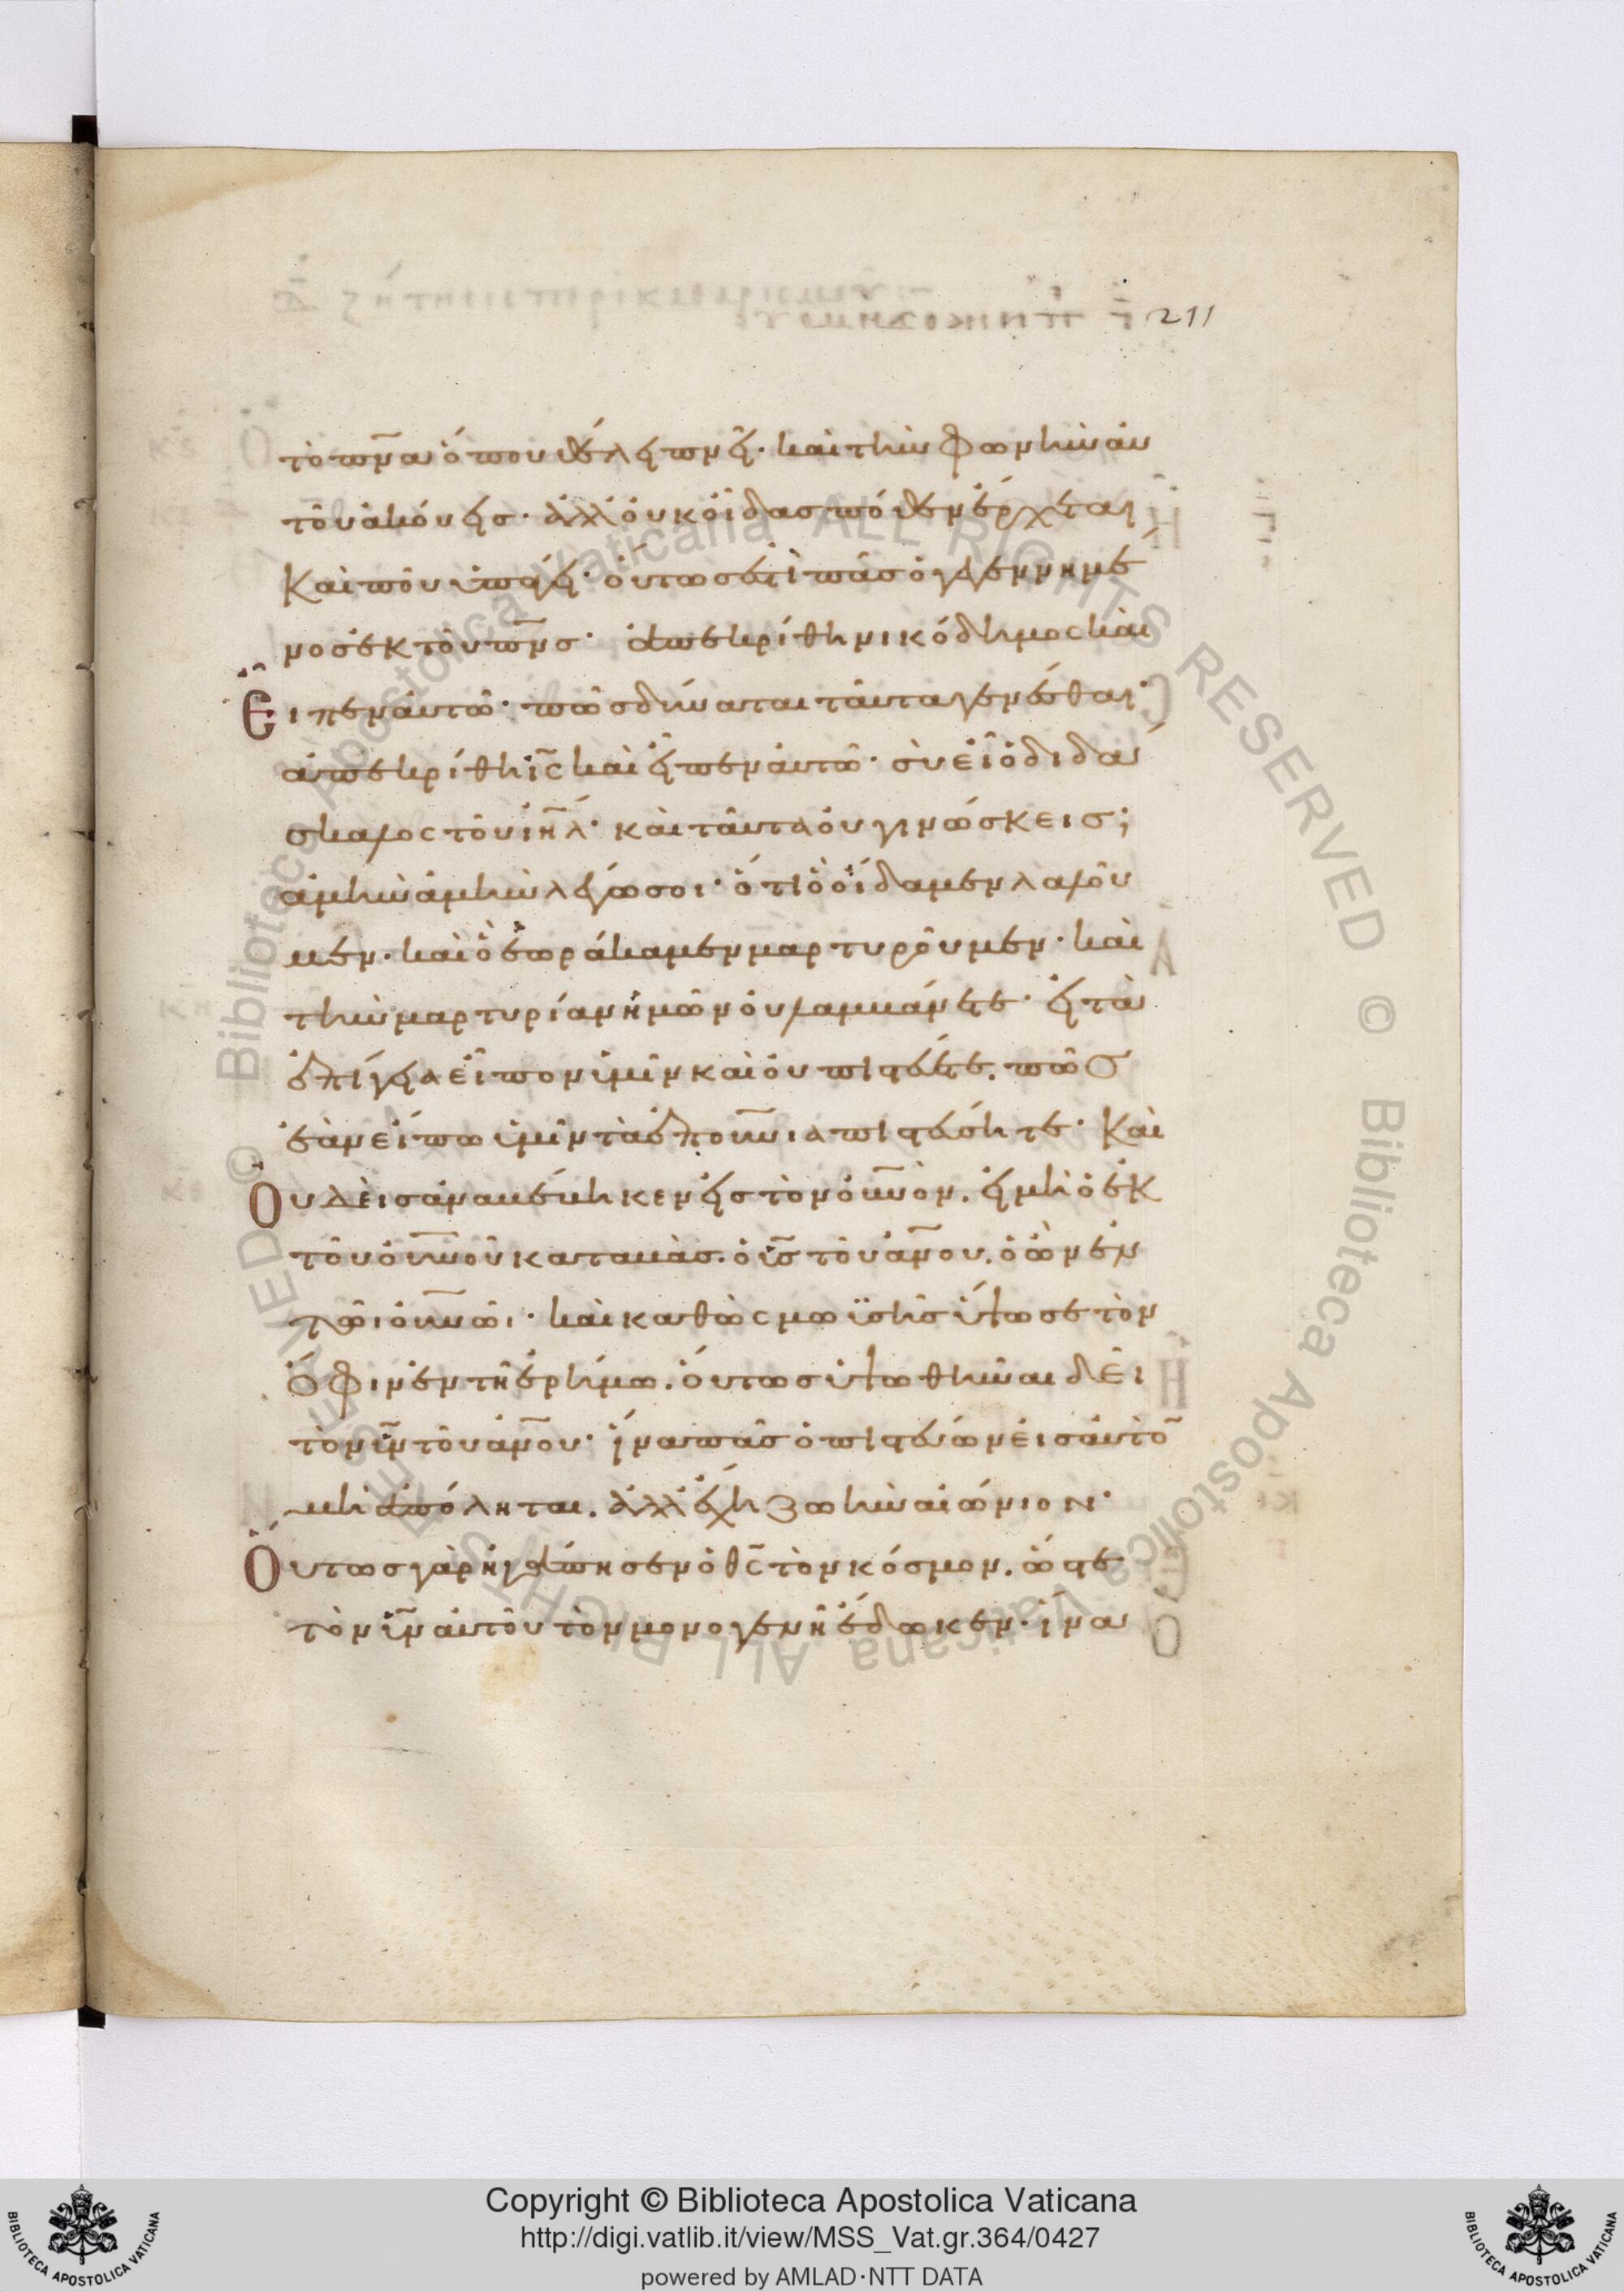 211
τὸ πν̅α ὅπου θέλει πνεῖ· καὶ τὴν φωνὴν αὐ
τοῦ ἀκούεις· ἀλλ' οὐκ οἶδας πόθεν ἔρχεται
Καὶ ποῦ ὑπάγει· οὕτως ἐστὶ πᾶς ὁ γεγεννημέ
νος ἐκ τοῦ πν̅ς· ἀπεκρίθη νικόδημος καὶ
Εἶπεν αὐτῶ· πῶς δύναται ταῦτα γενέσθαι·
ἀπεκρίθη ι̅ς καὶ εἶπεν αὐτῶ· σὺ εἶ ὁ διδά
σκαλος τοῦ ι̅η̅λ· καὶ ταῦτα οὐ γινώσκεις;
ἀμὴν ἀμὴν λέγω σοι· ὅτι ὃ οἴδαμεν λαλοῦ
μεν· καὶ ὃ ἑωράκαμεν μαρτυροῦμεν· καὶ
τὴν μαρτυρίαν ἡμῶν οὐ λαμβάνετε· εἰ τὰ
ἐπίγεια εἶπον ὑμῖν καὶ οὐ πιστεύετε. πῶς
ἐὰν εἴπω ὑμῖν τὰ ἐπουν̅ια πιστεύσητε· Καὶ
Οὐδεὶς ἀναβέβηκεν εἰς τὸν οὐν̅ὸν. εἰ μὴ ὁ ἐκ
τοῦ οὐν̅οῦ καταβὰς. ὁ υ̅ς τοῦ ἀν̅ου. ὁ ὢν ἐν
τῶι οὐν̅ῶι· καὶ καθὼς μωϋσῆς ὕψωσε τὸν
Ὄφιν ἐν τῆ ἐρήμω. οὕτως ὑψωθῆναι δεῖ
τὸν υ̅ν τοῦ ἀν̅ου· ἵνα πᾶς ὁ πιστεύων εἰς αὐτὸ̅
μὴ ἀπόληται. ἀλλ' ἔχη ζωὴν αἰώνιον·
Οὕτως γὰρ ἠγάπησεν ὁ θ̅ς τὸν κόσμον. ὥστε
τὸν υ̅ν αὐτοῦ τὸν μονογενῆ ἔδωκεν. ἵνα
Copyright © Biblioteca Apostolica Vaticana
http://digi.vatlib.it/view/MSS_Vat.gr.364/0427
powered by AMLAD·NTT DATA
BIBLIOTECA APOSTOLICA VATICANA
BIBLIOTECA APOSTOLICA VATICANA